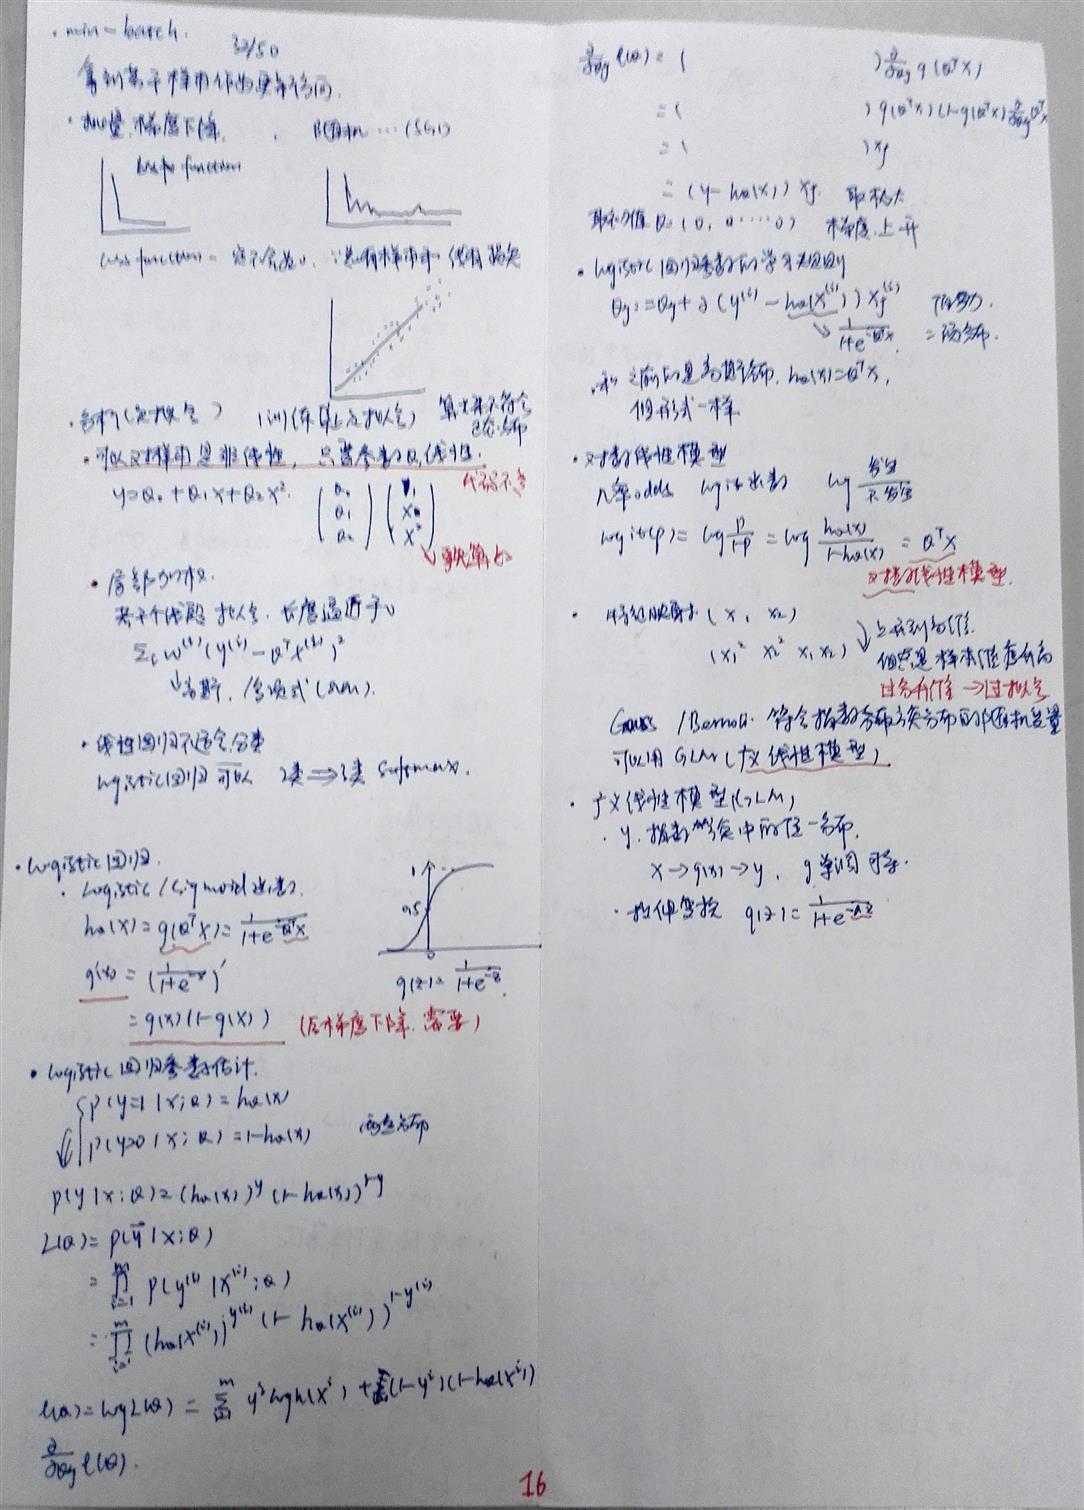 · min-batch.
32/50
拿到若干样本作为更新方向.
· 批量梯度下降. 随机 ... (SGD)
loss function
loss function = 一定不会为0, ∵总有样本带有损失
· 可以对样本是非线性, 只需参数θ线性.
y=θ₀+θ₁x+θ₂x².
· 局部加权.
若干个线段拟合, 长度逼近于0
Σᵢ w⁽ⁱ⁾(y⁽ⁱ⁾-θᵀx⁽ⁱ⁾)²
· 线性回归不适合分类
logistic回归可以 2类⇒3类 softmax.
· Logistic回归.
· Logistic/sigmoid函数.
hθ(x)=g(θᵀx)=1/(1+e^-θᵀx)
g'(x) = (1/(1+e^-x))'
= g(x)(1-g(x)) (后梯度下降. 需要)
1
0.5
0
g(z)=1/(1+e^-z).
· Logistic回归参数估计.
{P(y=1|x;θ)=hθ(x)
P(y=0|x;θ)=1-hθ(x) 两点分布
P(y|x;θ)=(hθ(x))^y (1-hθ(x))^1-y
L(θ)=P(y⃗|x;θ)
= ∏ᵢ₌₁ᵐ P(y⁽ⁱ⁾|x⁽ⁱ⁾;θ)
= ∏ᵢ₌₁ᵐ (hθ(x⁽ⁱ⁾))^y⁽ⁱ⁾ (1-hθ(x⁽ⁱ⁾))^1-y⁽ⁱ⁾
l(θ)=logL(θ) = Σᵢ₌₁ᵐ yⁱ log h(xⁱ) + (1-yⁱ)(1-hθ(xⁱ))
∂/∂θj l(θ).
∂/∂θj l(θ) = ( ) ∂/∂θj g(θᵀx)
= ( ) g(θᵀx)(1-g(θᵀx)) ∂/∂θj θᵀx
= ( ) xj
= (y-hθ(x)) xj. 取极大
取初值 θ=(0, 0 ····0) 梯度上升
· logistic回归参数的学习规则
θj:=θj+α(y⁽ⁱ⁾-hθ(x⁽ⁱ⁾))xj⁽ⁱ⁾
1/(1+e^-θᵀx)
· 和之前的是高斯分布, hθ(x)=θᵀx,
但形式一样
· 对数线性模型
几率odds logit函数 log 发生/不发生
logit(p)=log p/(1-p) = log hθ(x)/(1-hθ(x)) = θᵀx
对数线性模型.
· 特征映射 (x₁ x₂)
(x₁² x₂² x₁x₂)
过多特征 → 过拟合
Gauss /Bernoulli. 符合指数分布族分布的随机变量
可以用GLM (广义线性模型)
· 广义线性模型(GLM)
· y. 指数族中的任一分布.
x→g(x)→y, g单调可导.
· 拉伸变换 g(z)=1/(1+e^-λz)
16